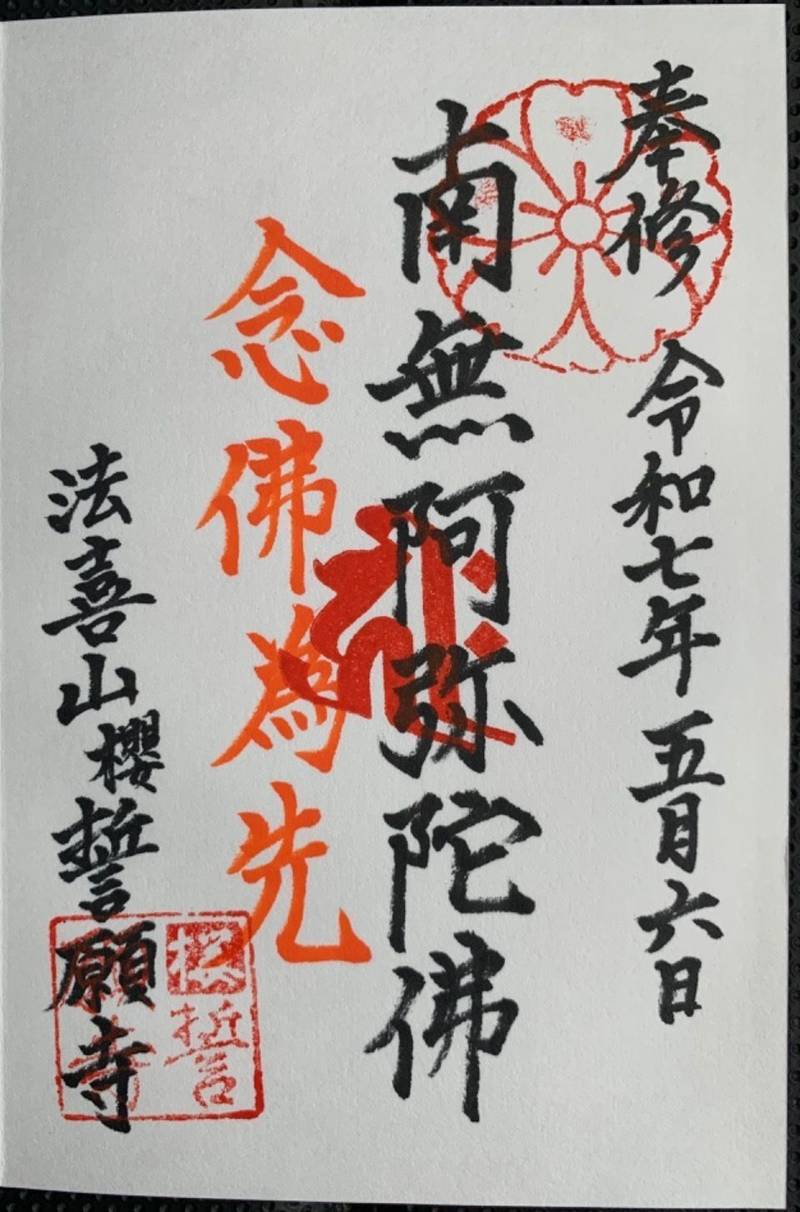 奉修 令和七年五月六日
南無阿弥陀佛
念佛為先
法喜山櫻誓願寺
櫻誓願寺